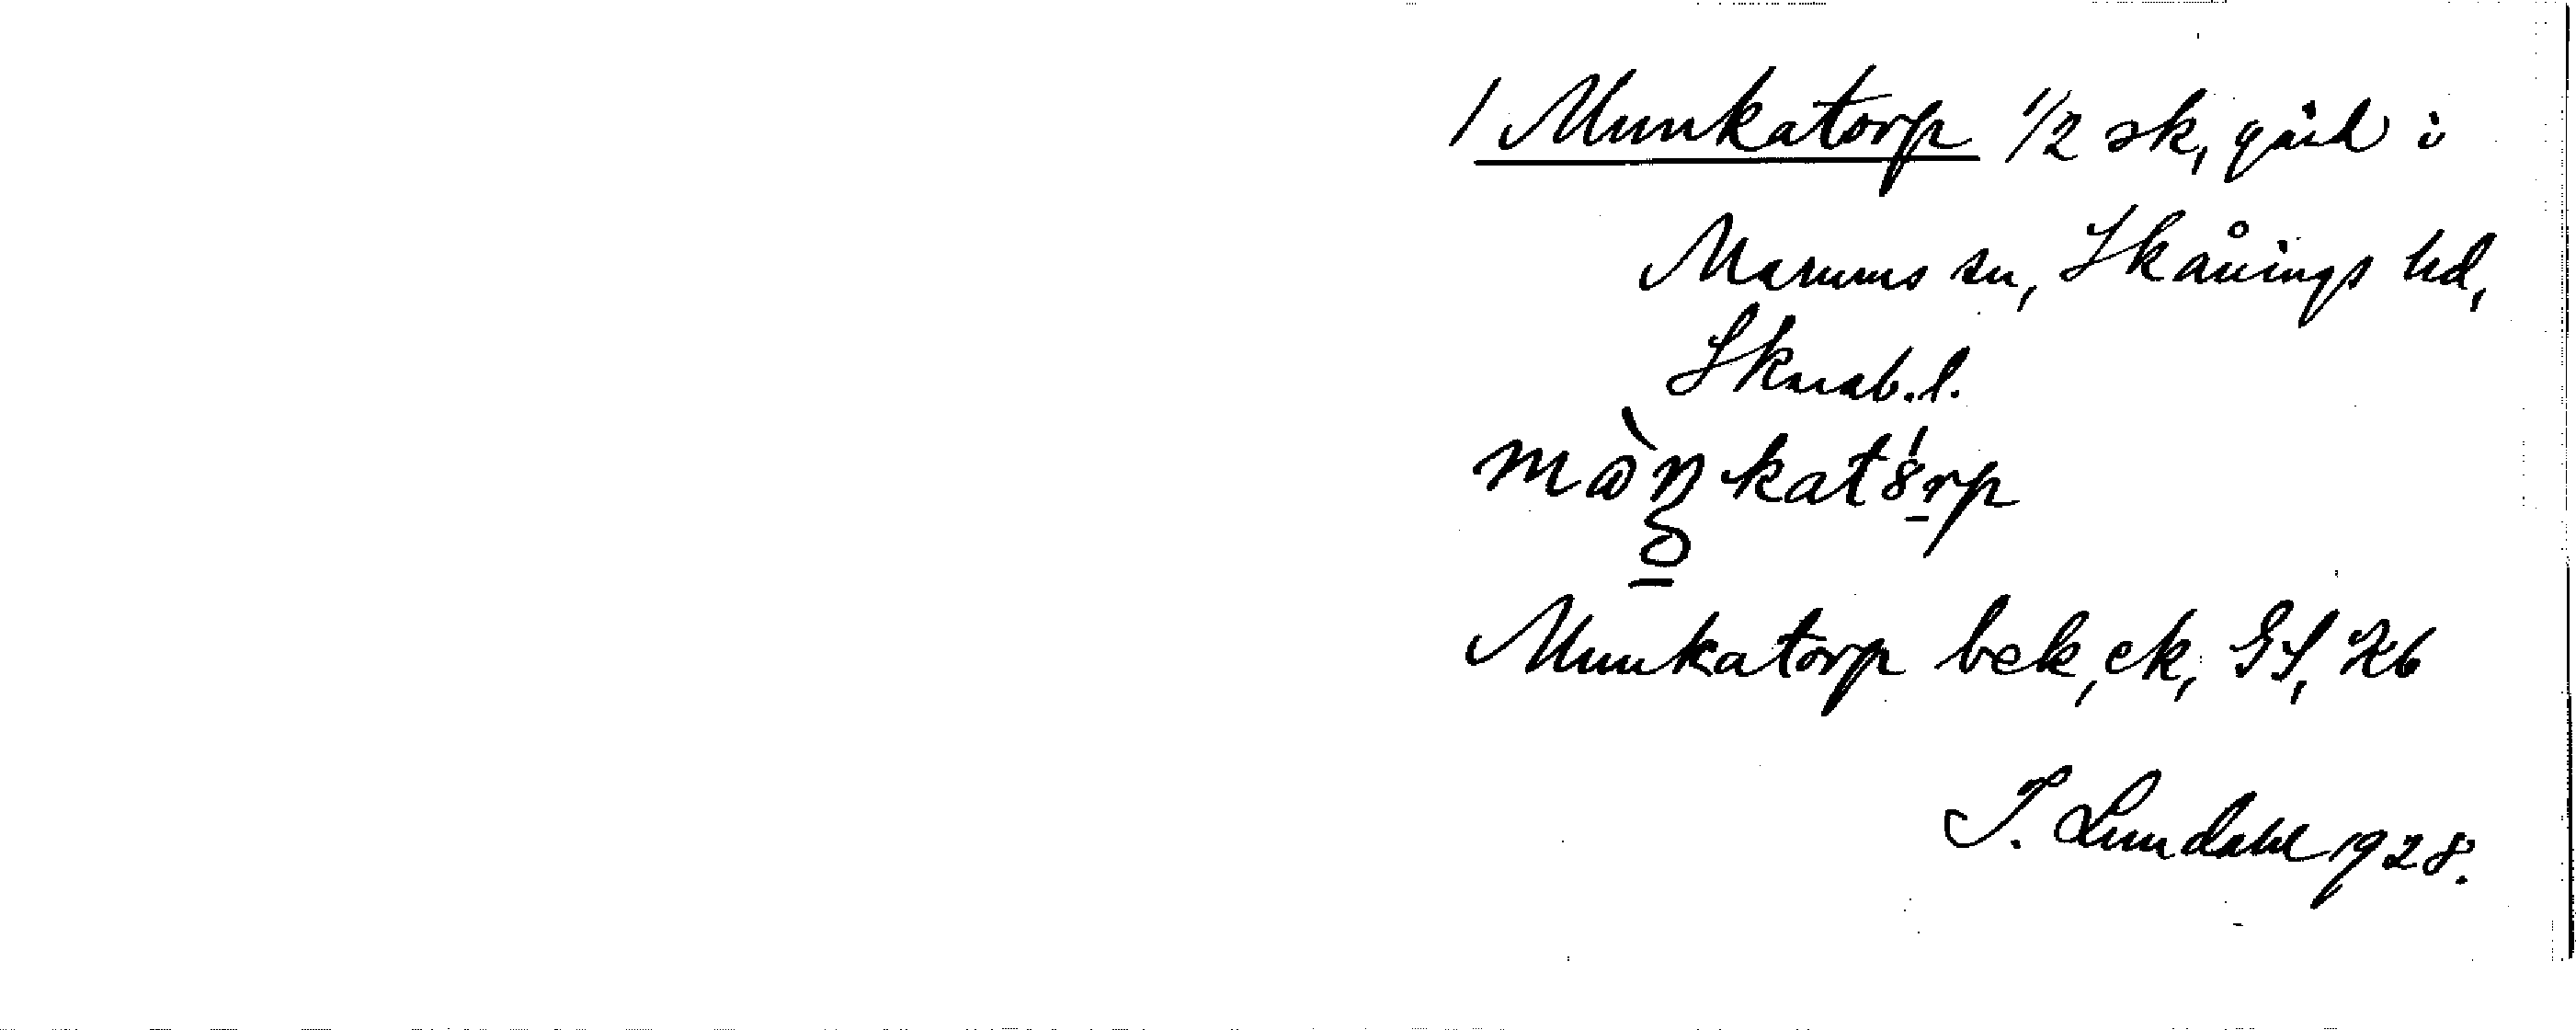 1 Munkatorp 1/2 sk, gård i
Marums sn, Skånings hd,
Skarab. l.
Munkatorp bek, ek, GS, Kb
I. Lundahl 1928.